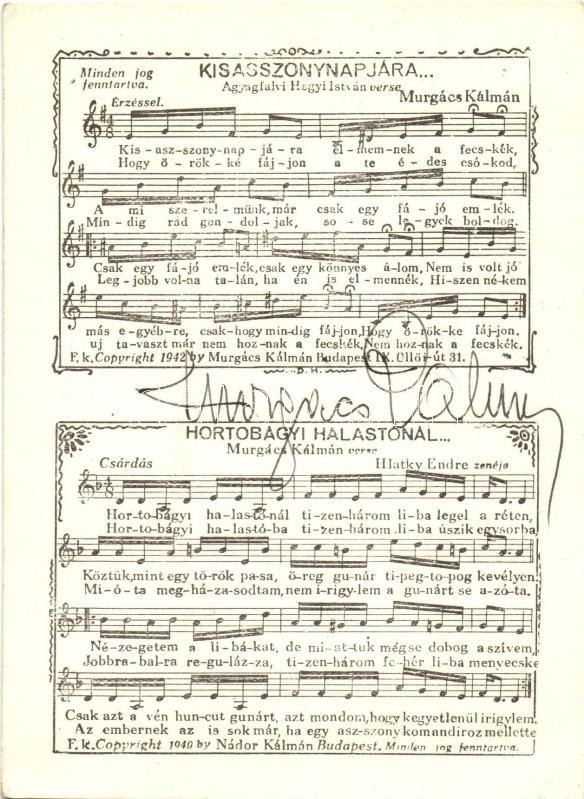 KISASSZONYNAPJÁRA...
Minden jog
fenntartva.
Agyagfalvi Hegyi István verse
Murgács Kálmán
Érzéssel.
Kis-asz-szony-nap-já-ra el-mem-nek a fecs-kék,
Hogy ö-rök-ké fáj-jon a te é-des csó-kod,
A mi sze-rel-münk, már csak egy fá-jó em-lék.
Min-dig rád gon-dol-jak, so-se le-gyek bol-dog.
Csak egy fá-jó em-lék, csak egy könnyes á-lom, Nem is volt jó
Leg-jobb vol-na ta-lán, ha én is el-mennék, Hi-szen né-kem
más e-gyéb-re, csak-hogy min-dig fáj-jon, Hogy ö-rök-ke fáj-jon.
uj ta-vaszt már nem hoz-nak a fecskék, Nem hoz-nak a fecskék.
F. k. Copyright 1942 by Murgács Kálmán Budapest IX. Üllői-út 31.
B. H.
Murgács Kálmán
HORTOBÁGYI HALASTÓNÁL...
Murgács Kálmán verse
Csárdás
Hlatky Endre zenéje
Hor-to-bágyi ha-las-tónál ti-zen-három li-ba legel a réten,
Hor-to-bágyi ha-las-tó-ba ti-zen-három li-ba úszik egysorba
Köztük, mint egy tö-rök pa-sa, ö-reg gu-nár ti-peg-to-pog kevélyen.
Mi-ó-ta meg-há-za-sodtam, nem i-rigy-lem a gu-nárt se a-zó-ta.
Né-ze-getem a li-bá-kat, de mi-at-tuk mégse dobog a szívem,
Jobbra-balra re-gu-láz-za, ti-zen-három fe-hér li-ba menyecske
Csak azt a vén hun-cut gunárt, azt mondom, hogy kegyetlenül irigylem.
Az embernek az is sok már, ha egy asz-szony komandíroz mellette
F. k. Copyright 1940 by Nádor Kálmán Budapest. Minden jog fenntartva.